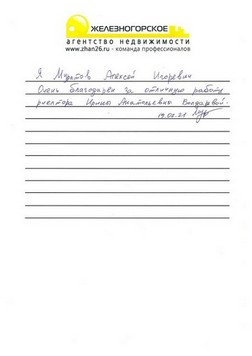 ЖЕЛЕЗНОГОРСКОЕ
агентство недвижимости
www.zhan26.ru - команда профессионалов
Я Муратов Алексей Игоревич
Очень благодарен за отличную работу
риелтора Ирины Анатольевны